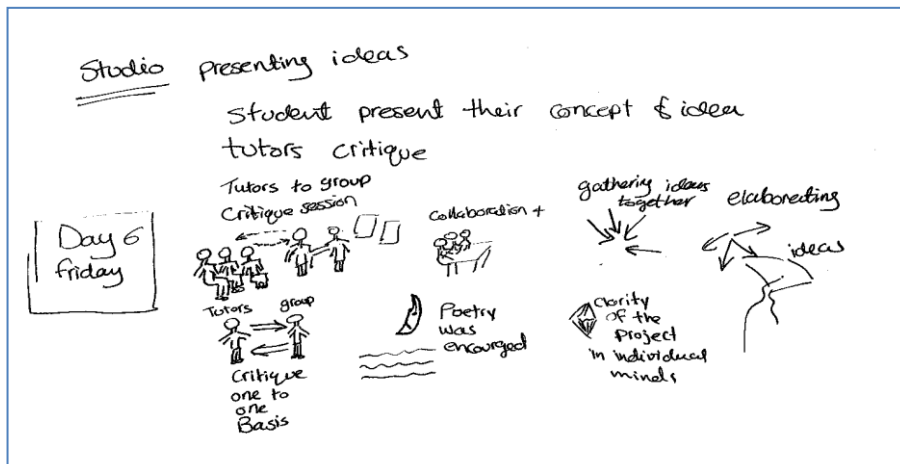 Studio presenting ideas
Student present their concept & idea
tutors critique
Tutors to group
Critique session
Collaboration +
gathering ideas
together
elaborating
ideas
Day 6
friday
Tutors group
Critique
one to
one
Basis
Poetry
was
encourged
Clarity
of the
project
in individual
minds